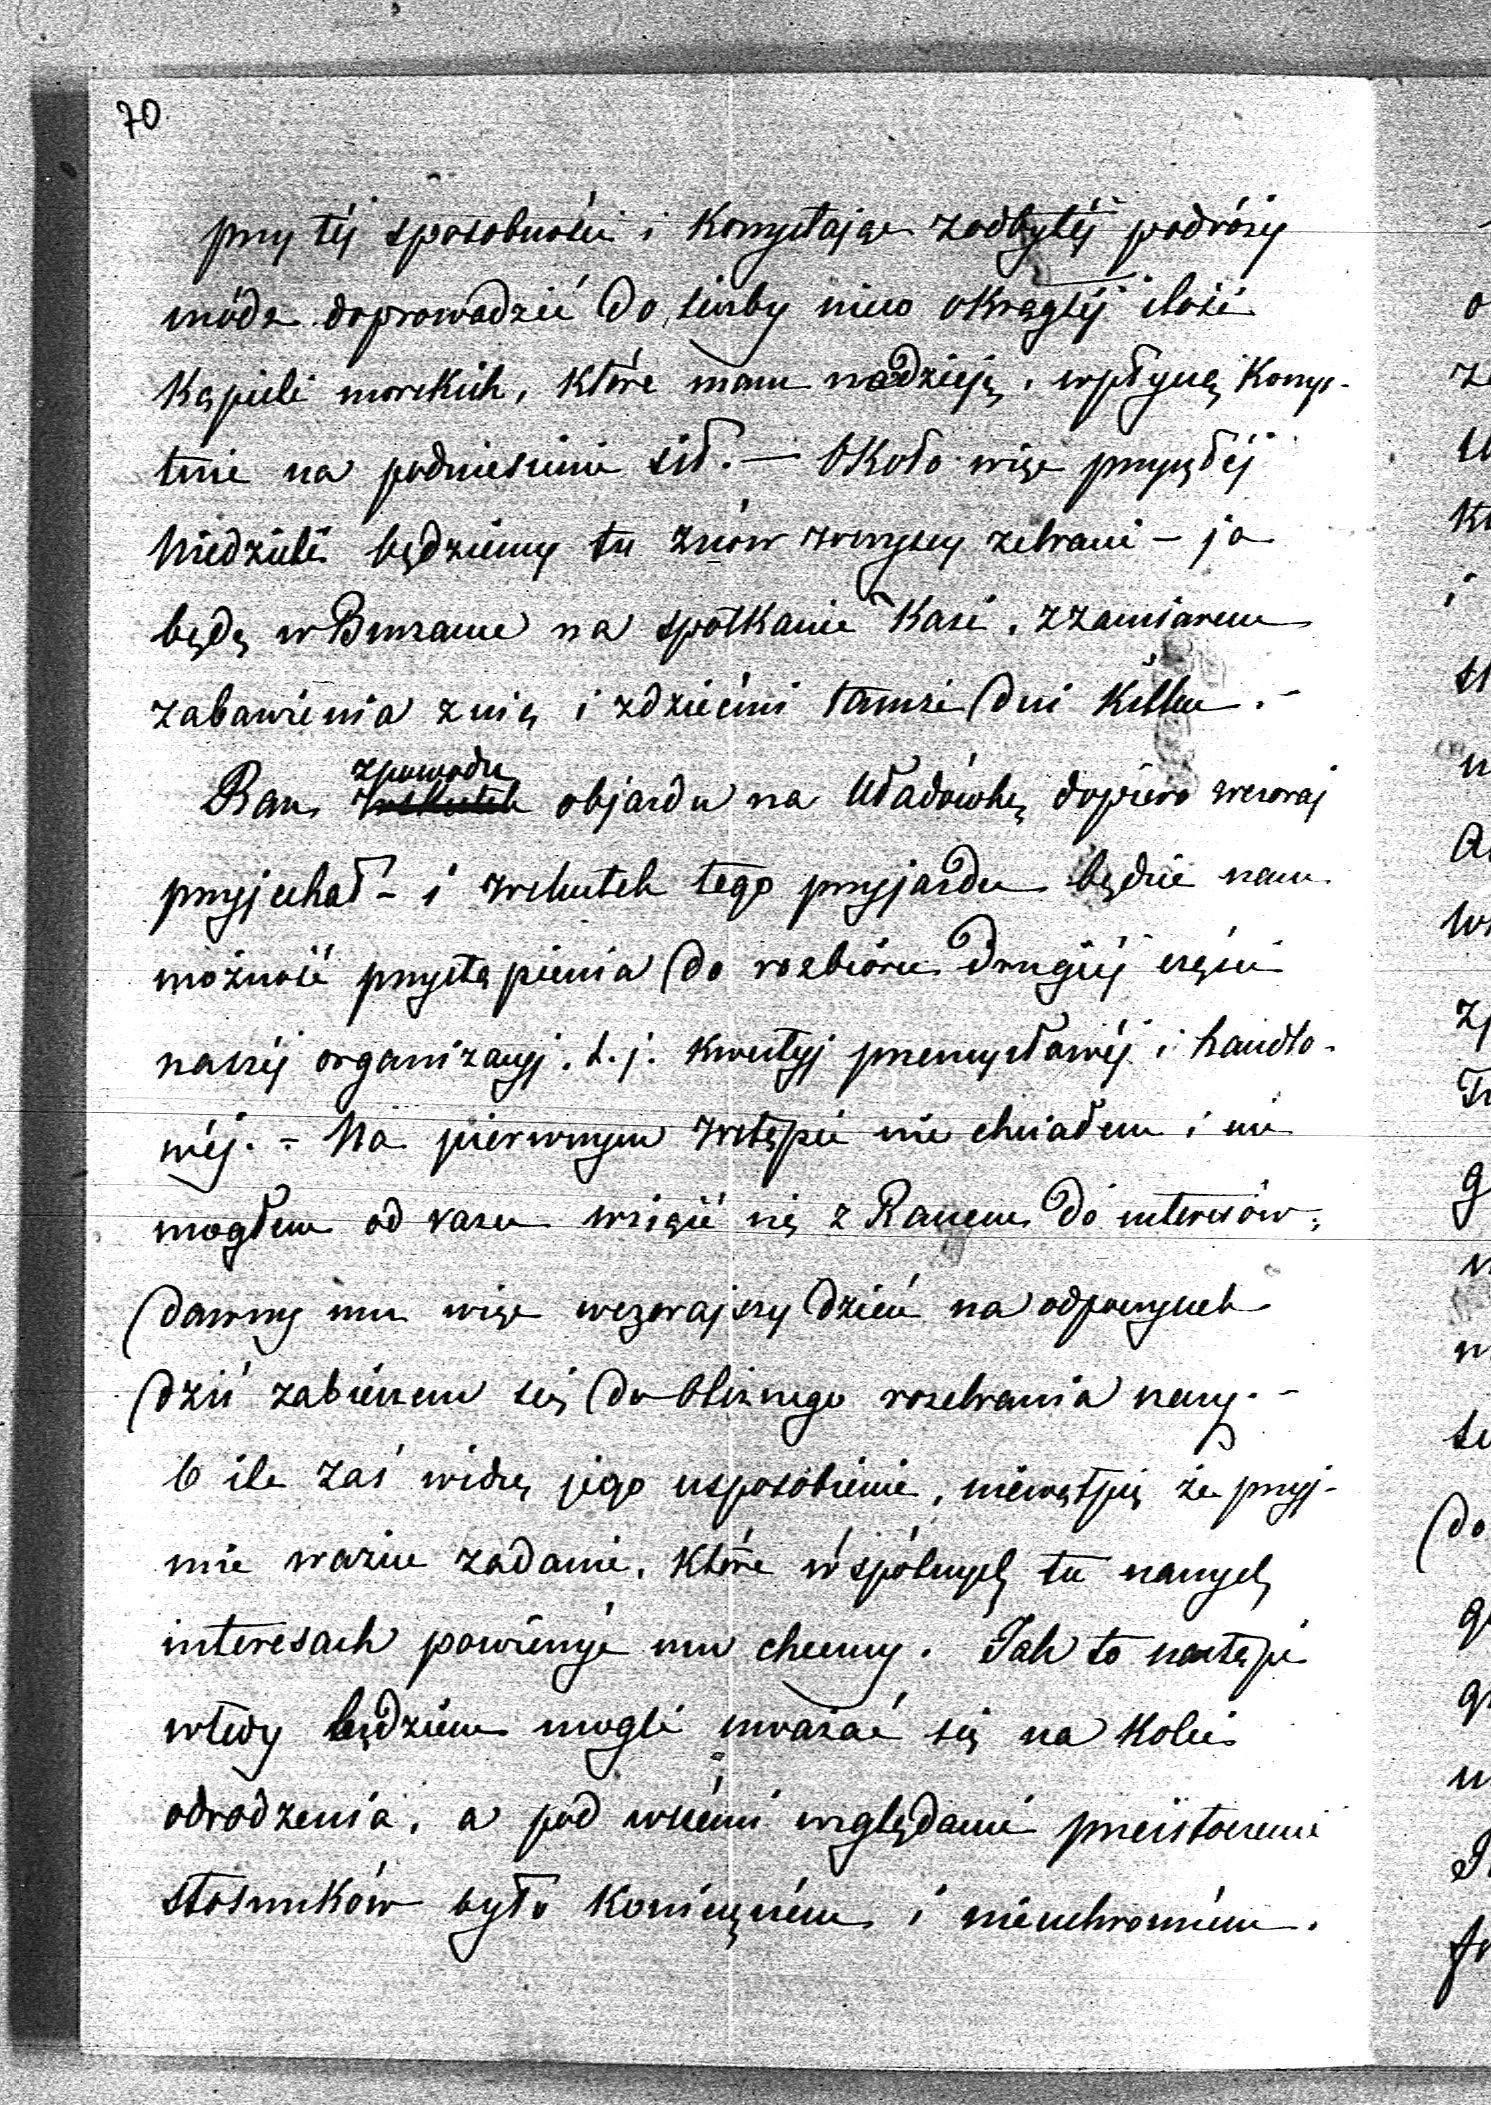 70
przy téj sposobności i korzystając zodbytéj podróży
módz doprowadzić do liczby nieco okrągłéj ilość
kąpieli morskich, które mam nadzieję, wpłyną korzys-
tnie na podniesienie sił. — Około więc przyszłéj
Niedzieli będziemy tu znów wszyscy zebrani – ja
będę w Buczaczu na spotkanie Kasi, zzamiarem
zabawienia znią i zdziećmi tamże dni kilku. –
zpowodu
Rau wskutek objazdu na Uładówkę dopiero wczoraj
przyjechał – i wskutek tego przyjazdu będzie nam
możność przystąpienia do rozbioru drugiéj części
naszéj organizacyj, t. j. kwestyj przemysłowéj i handlo-
wéj. – Na pierwszym wstępie nie chciałem i nie
mogłem od razu wziąść się z Rauem do interesów;
damy mu więc wczorajszy dzień na odpoczynek
dziś zabierzem się do bliznego rozebrania rzeczy. –
O ile zaś widzę jego usposobienie, niewątpię że przyj-
mie ważne zadanie, które wspólnych tu naszych
interesach powierzyć mu chcemy. Jak to nastąpi
wtedy będziem mogli uważać się na kolei
odrodzenia, a pod wsiemi względami przeistoczenie
stosunków było konieczném i nieuchronném.